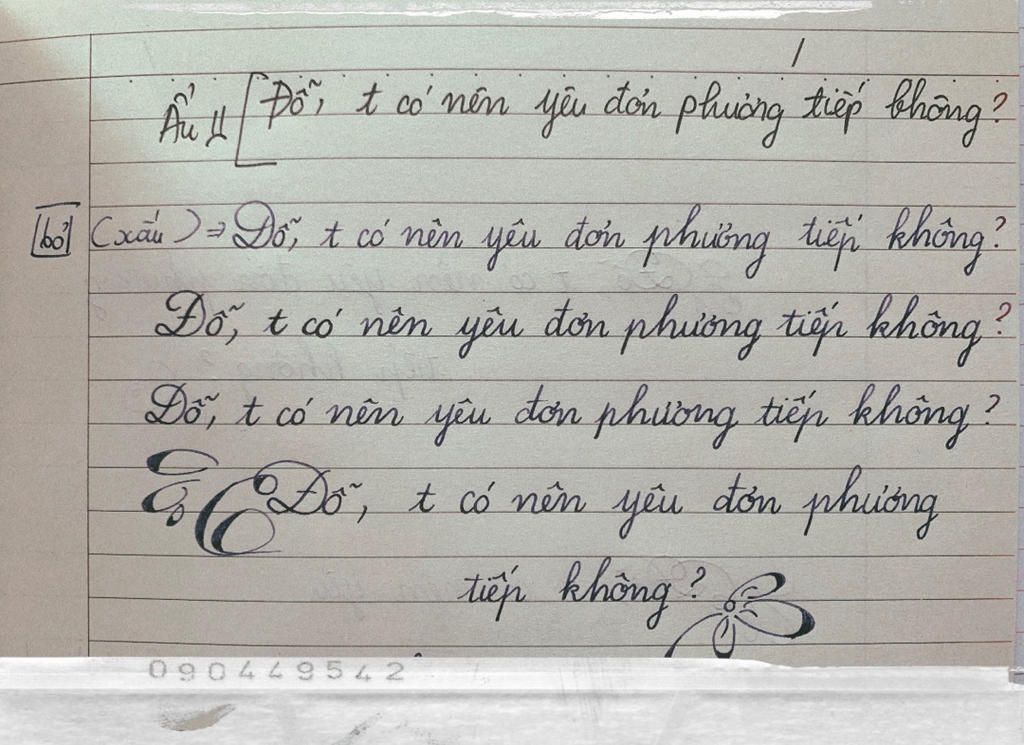 Ẩu Đỗ, t có nên yêu đơn phương tiếp không?
bỏ (xấu) ⇒ Đỗ, t có nên yêu đơn phương tiếp không?
Đỗ, t có nên yêu đơn phương tiếp không?
Đỗ, t có nên yêu đơn phương tiếp không?
Đỗ, t có nên yêu đơn phương
tiếp không?
090449542